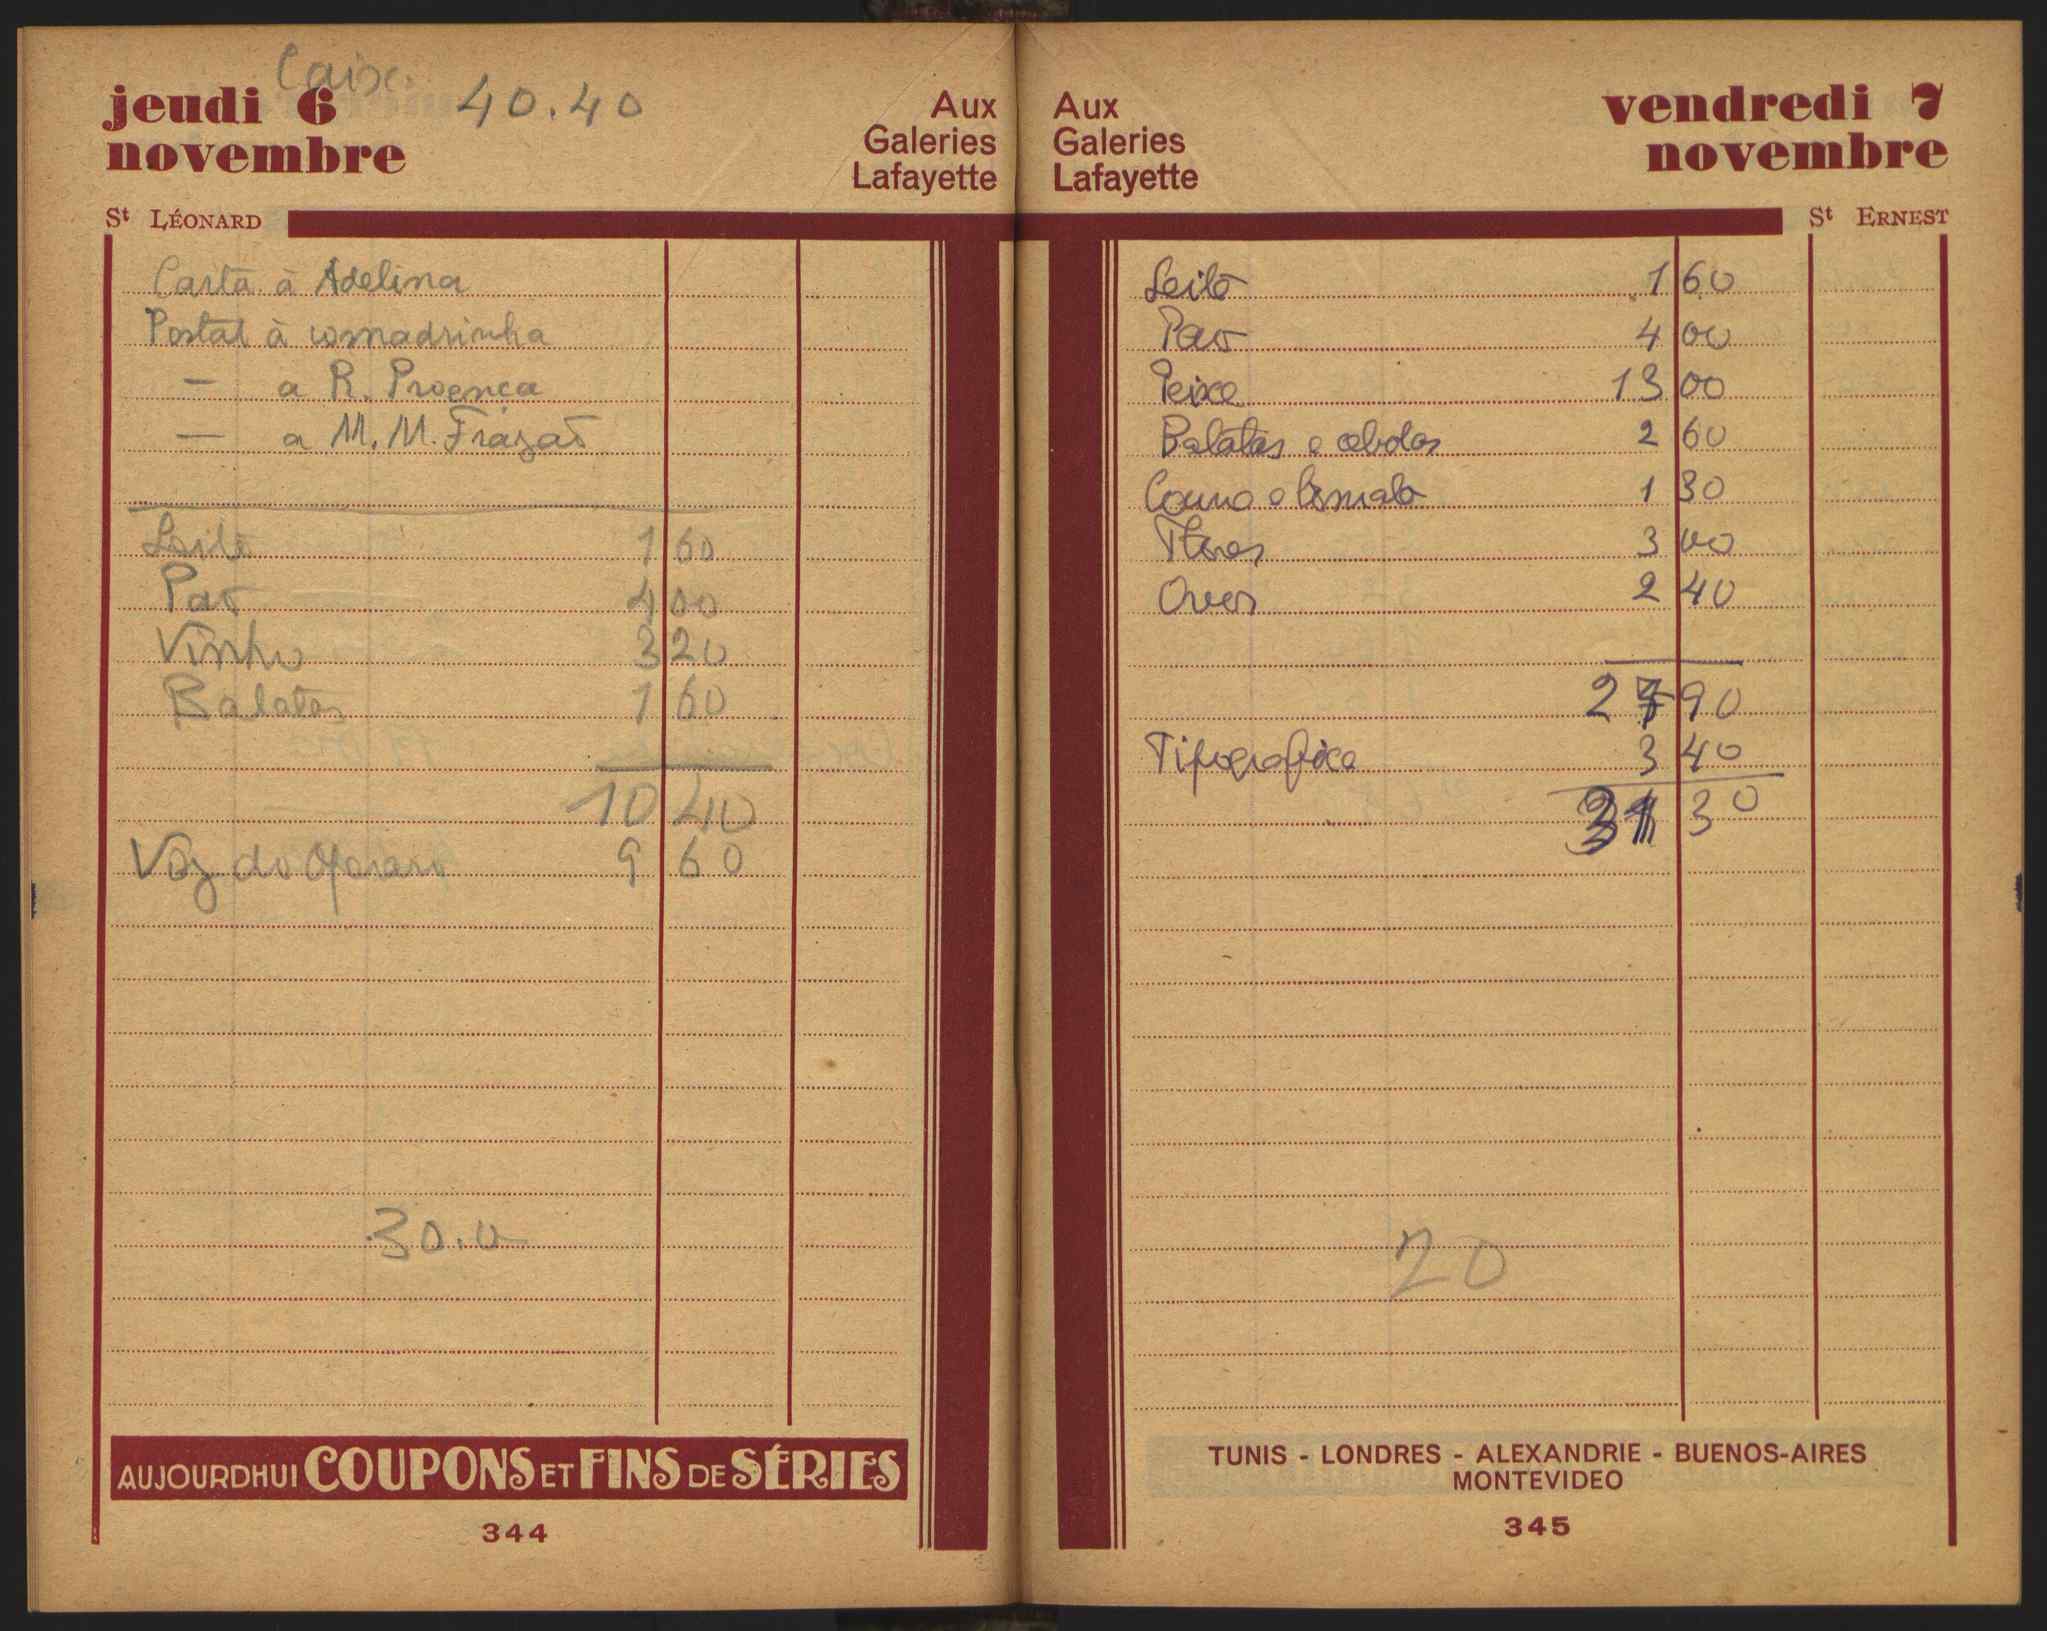 Caixa
jeudi 6 40.40
novembre
Aux
Galeries
Lafayette
St LÉONARD
Carta à Adelina
Postal à comadrinha
— a R. Proença
— a M. M. Frazão
Leite 1 60
Pão 4 00
Vinho 3 20
Batatas 1 60
10 40
Voz do Operario 9 60
30.0
AUJOURDHUI COUPONS ET FINS DE SÉRIES
344
Aux
Galeries
Lafayette
vendredi 7
novembre
St ERNEST
Leite 1 60
Pão 4 00
Peixe 13 00
Batatas e cebolas 2 60
Couve e tomate 1 30
Flores 3 00
Ovos 2 40
27 90
Tipografica 3 40
31 30
20
TUNIS - LONDRES - ALEXANDRIE - BUENOS-AIRES
MONTEVIDEO
345